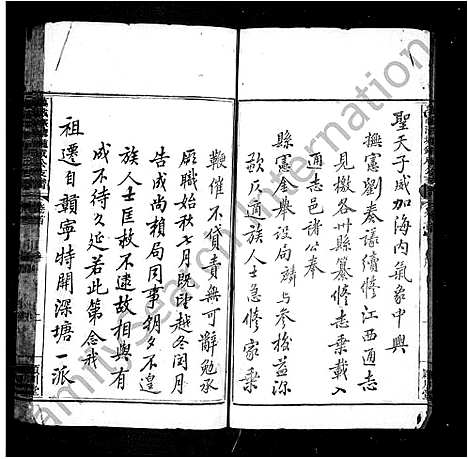 聖天子威加海內氣象中興
撫憲劉奏議續修江西通志
見檄各州縣纂修志乘載入
通志邑諸公奉
縣憲金舉設局 與參機益深
歉仄適族人士急修家乘
鞭催不貸責無可辭勉承
厥職始秋七月既望越冬閏月
告成尚賴局同事朝夕不遑
族人士匡救不逮故相與有
成不待久延若此第念我
祖遷自贛寧特開深塘一派
FamilySearch International